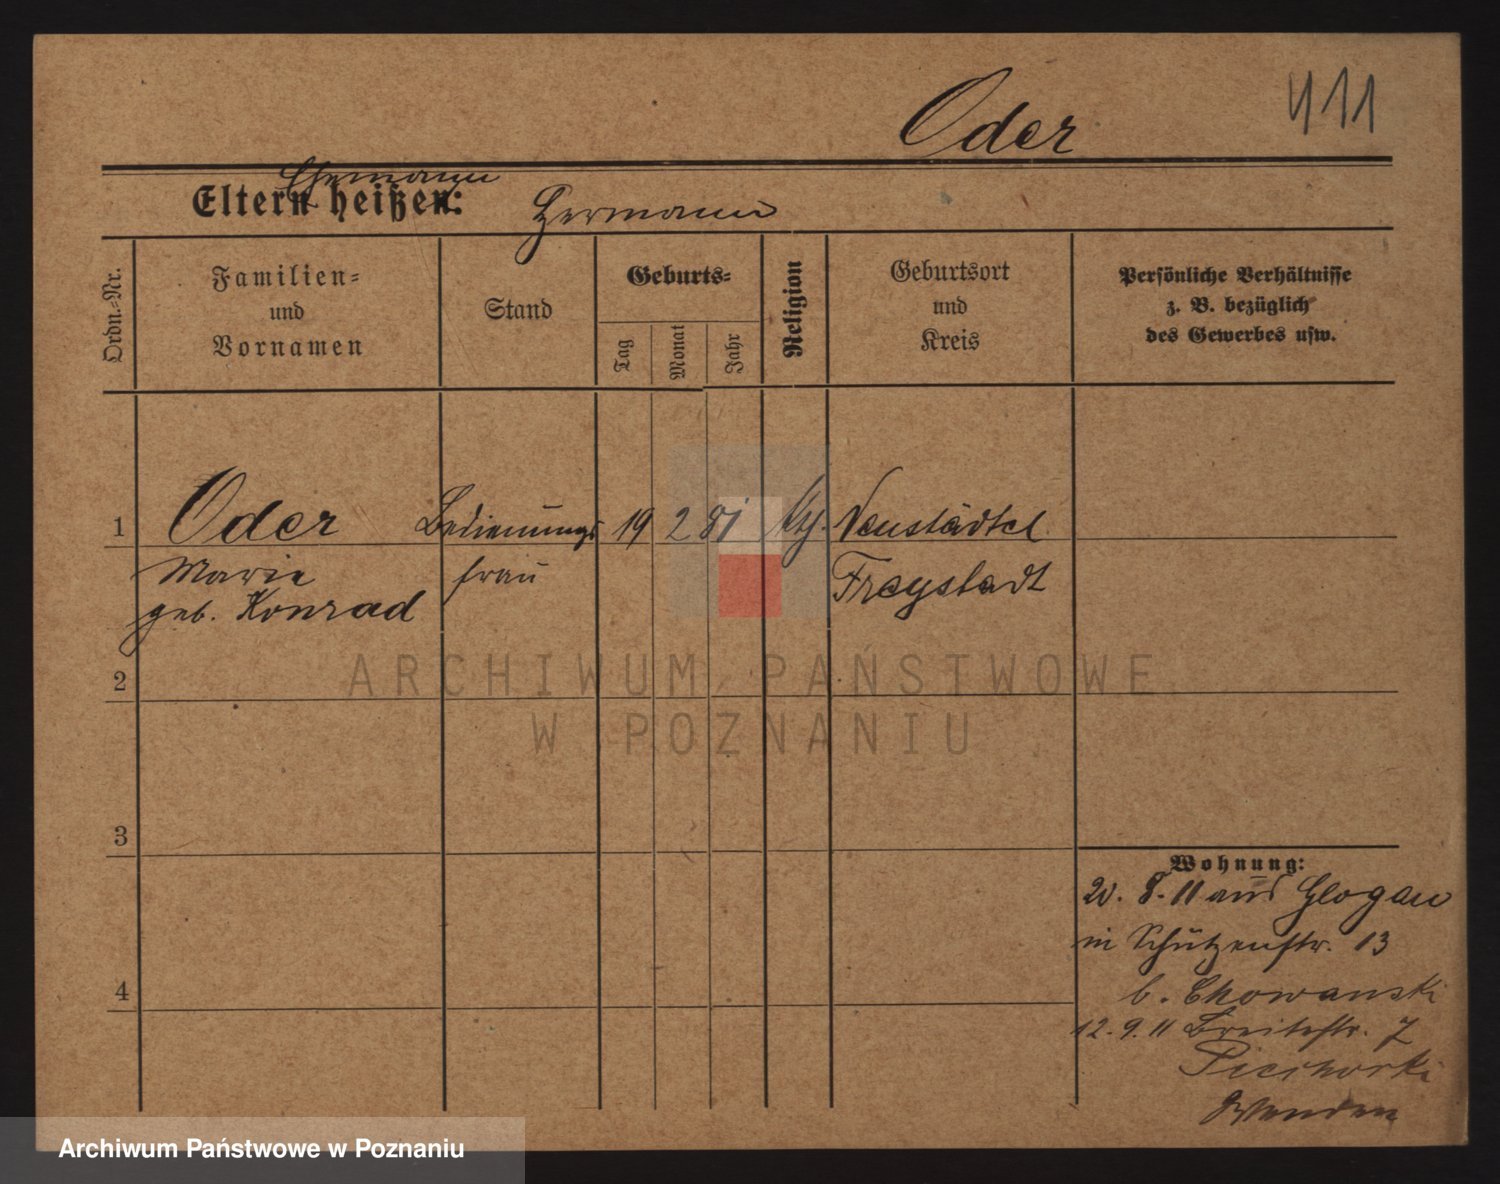 Oder
411
Ehemann
Eltern heißen: Hermann
Ordn.-Nr.
Familien-
und
Vornamen
Stand
Geburts-
Tag
Monat
Jahr
Religion
Geburtsort
und
Kreis
Persönliche Verhältnisse
z. B. bezüglich
des Gewerbes usw.
1 Oder Bedienungs 19 2 81 Neustädtel
Marie frau Freystadt
geb. Konrad
2
3
4
Wohnung:
20. 8. 11 aus Glogau
in Schützenstr. 13
b. Chowanski
12. 9. 11 Breitestr. 7
Wenden
ARCHIWUM PAŃSTWOWE
W POZNANIU
Archiwum Państwowe w Poznaniu